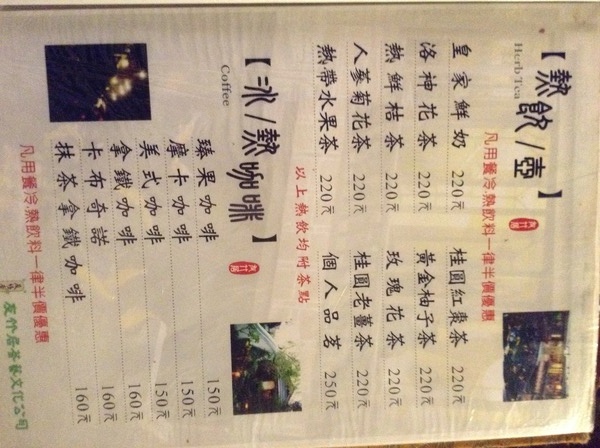 【熱飲/壺】
Herb Tea
凡用餐冷熱飲料一律半價優惠
皇家鮮奶 220元
桂圓紅棗茶 220元
洛神花茶 220元
黃金柚子茶 220元
熱鮮桔茶 220元
玫瑰花茶 220元
人蔘菊花茶 220元
桂圓老薑茶 220元
熱帶水果茶 220元
個人品茗 250元
以上熱飲均附茶點
【冰/熱咖啡】
Coffee
臻果咖啡 150元
摩卡咖啡 150元
美式咖啡 150元
拿鐵咖啡 160元
卡布奇諾 160元
抹茶拿鐵咖啡 160元
凡用餐冷熱飲料一律半價優惠
友竹居茶藝文化公司